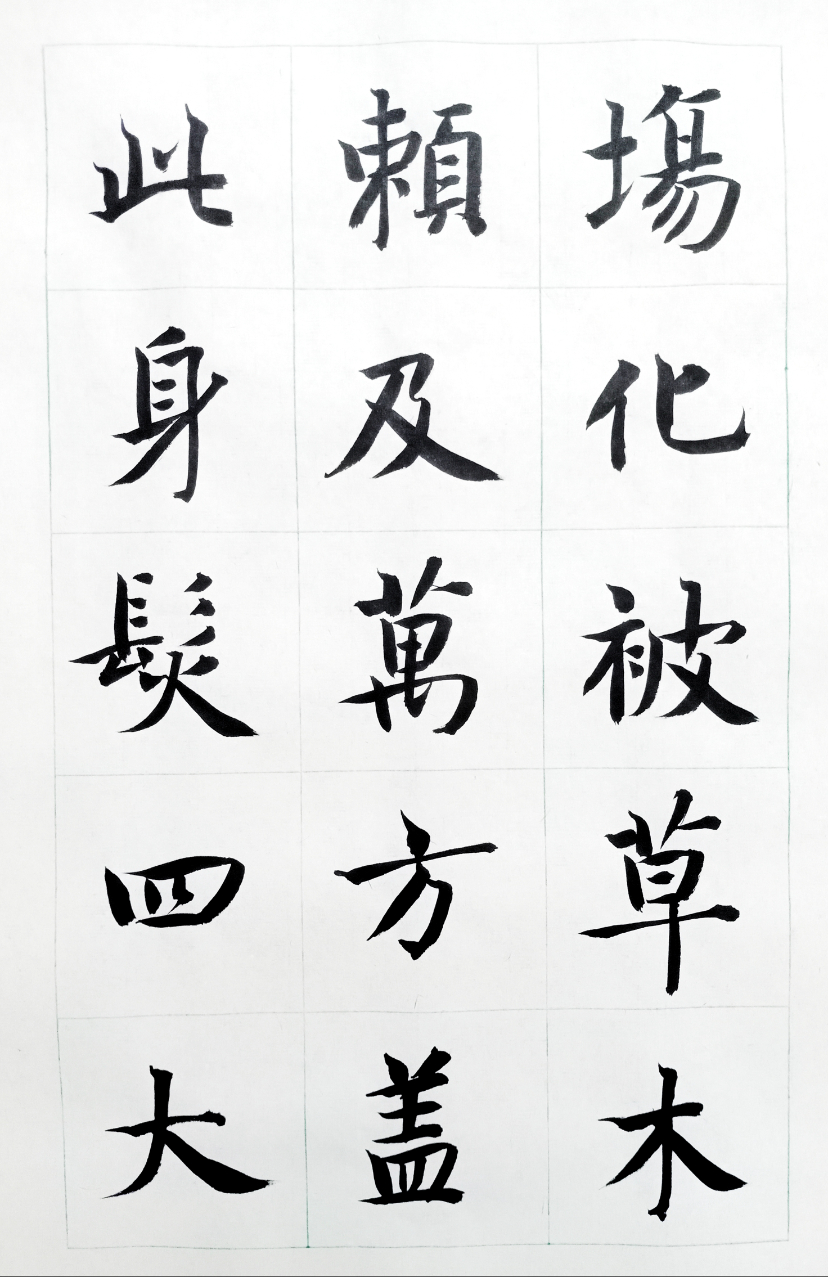 場化被草木
賴及萬方盖
此身髮四大